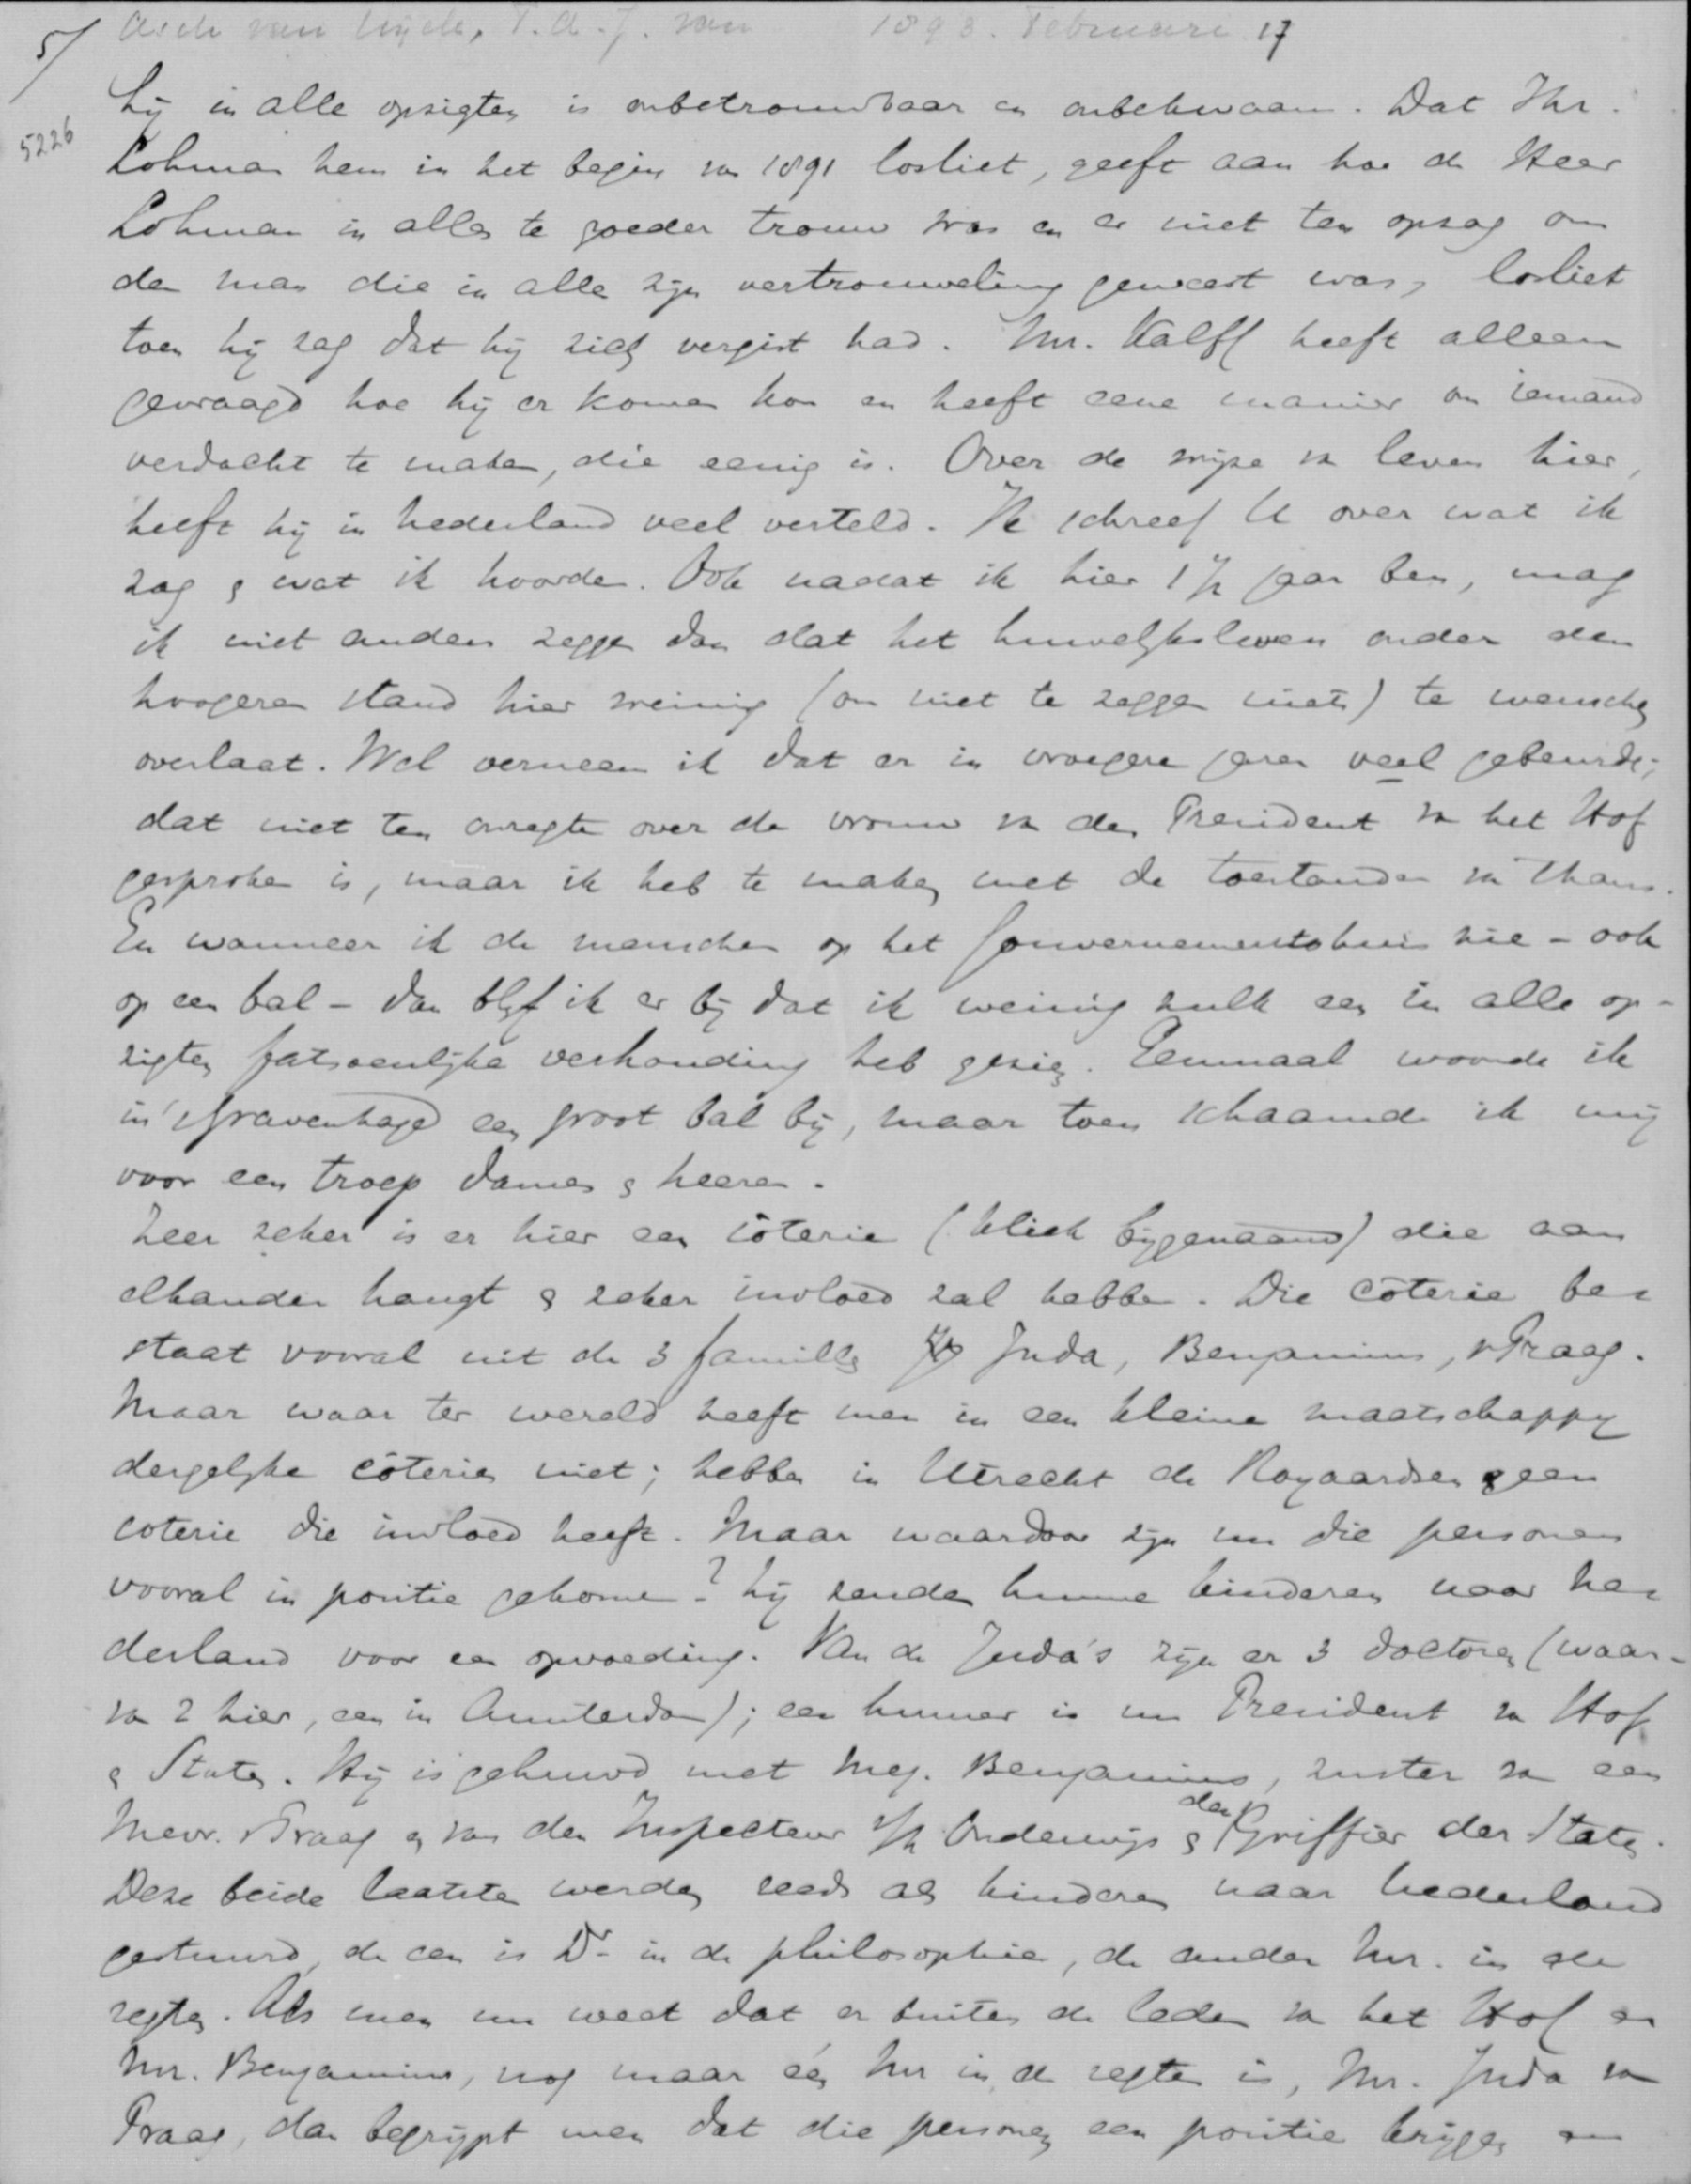 5/ Asch van Wijck, T.A.J. van 1893. Februari 17
5226
hij in alle opzigten is onbetrouwbaar en onbekwaam. Dat Jhr.
Lohman hem in het begin van 1891 losliet, geeft aan hoe de Heer
Lohman in alles te goeder trouw was en er niet ten opzag om
den man die in alles zijn vertrouweling geweest was, losliet
toen hij zag dat hij zich vergist had. Mr. Kalff heeft alleen
gevraagd hoe hij er komen kon en heeft eene manier om iemand
verdacht te maken, die eenig is. Over de wijze van leven hier,
heeft hij in Nederland veel verteld. Ik schreef U over wat ik
zag & wat ik hoorde. Ook nadat ik hier 1½ jaar ben, mag
ik niet anders zeggen dan dat het huwelijksleven onder den
hoogeren stand hier weinig (om niet te zeggen niets) te wenschen
overlaat. Wel verneem ik dat er in vroegere jaren veel gebeurde;
dat niet ten onregte over de vrouw van den President van het Hof
gesproken is, maar ik heb te maken met de toestanden van thans.
En wanneer ik de menschen op het Gouvernementshuis zie - ook
op een bal - dan blijf ik er bij dat ik weinig zulk een in alle op-
zigten fatsoenlijke verhouding heb gezien. Eenmaal woonde ik
in 's Gravenhage een groot bal bij, maar toen schaamde ik mij
voor een troep dames & heeren.
Zeer zeker is er hier een côterie (kliek bijgenaamd) die aan
elkander hangt & zeker invloed zal hebben. Die côterie be-
staat vooral uit de 3 familles Juda, Benjamins, v Praag.
Maar waar ter wereld heeft men in een kleine maatschappij
dergelijke côteries niet; hebben in Utrecht de Royaardsen geen
coterie die invloed heeft. Maar waardoor zijn nu die personen
vooral in positie gekomen? Zij zenden hunne kinderen naar Ne-
derland voor een opvoeding. Van de Juda's zijn er 3 doctoren (waar-
van 2 hier, een in Amsterdam); een hunner is nu President van Hof
& Staten. Hij is gehuwd met Mej. Benjamins, zuster van een
Mevr. v Praag & van den Inspecteur v/h Onderwijs & den Griffier der Staten.
Deze beide laatsten werden reeds als kinderen naar Nederland
gestuurd, de een is Dr in de philosophie, de ander Mr. in de
regten. Als men nu weet dat er buiten de leden van het Hof en
Mr. Benjamins, nog maar één Mr in de regten is, Mr. Juda van
Praag, dan begrijpt men dat die personen een positie krijgen en